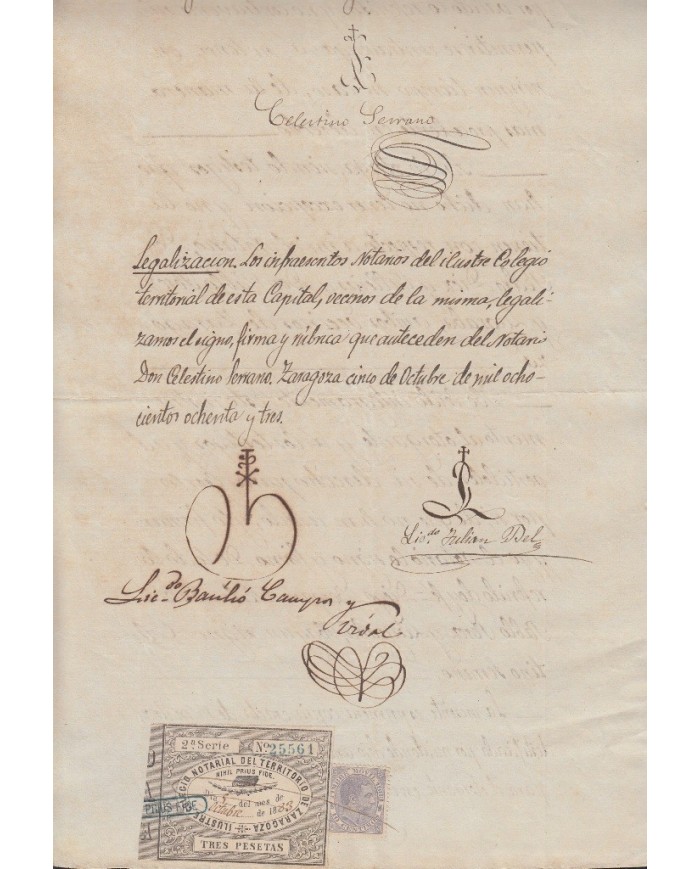 Celestino Serrano
Legalizacion. Los infraescritos Notarios del ilustre Colegio
territorial de esta Capital, vecinos de la misma, legali-
zamos el signo, firma y rúbrica que anteceden del Notario
Don Celestino Serrano. Zaragoza cinco de Octubre de mil ocho-
cientos ochenta y tres.
Licdo. Julian Bel
Licdo. Basilio Campos y
Vidal
2ª Serie Nº 25561
ILUSTRE COLEGIO NOTARIAL DEL TERRITORIO DE ZARAGOZA
NIHIL PRIUS FIDE
del mes de
Octubre de 1883
PRIUS FIDE
TRES PESETAS